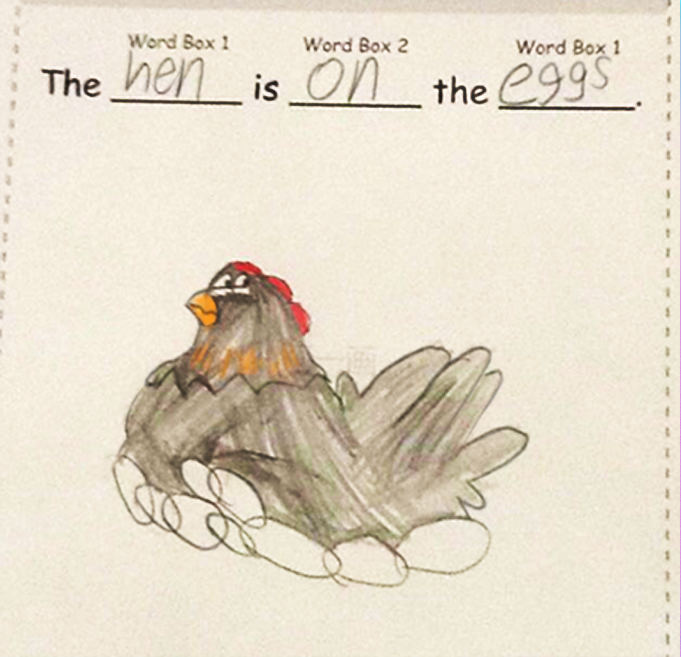 Word Box 1 Word Box 2 Word Box 1
The hen is on the eggs.